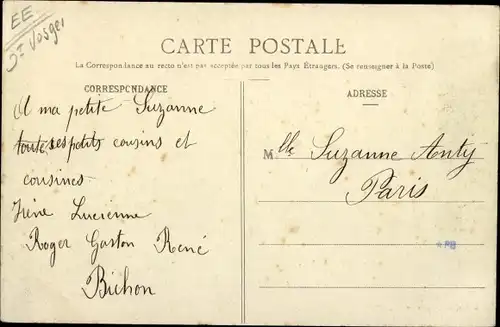 EE
Jt Vosges
CARTE POSTALE
La Correspondance au recto n'est pas acceptée par tous les Pays Étrangers. (Se renseigner à la Poste)
CORRESPONDANCE
A ma petite Suzanne
toute ses petits cousins et
cousines
Irène Lucienne
Roger Gaston René
Bichon
ADRESSE
Mlle Suzanne Anty
Paris
*PB